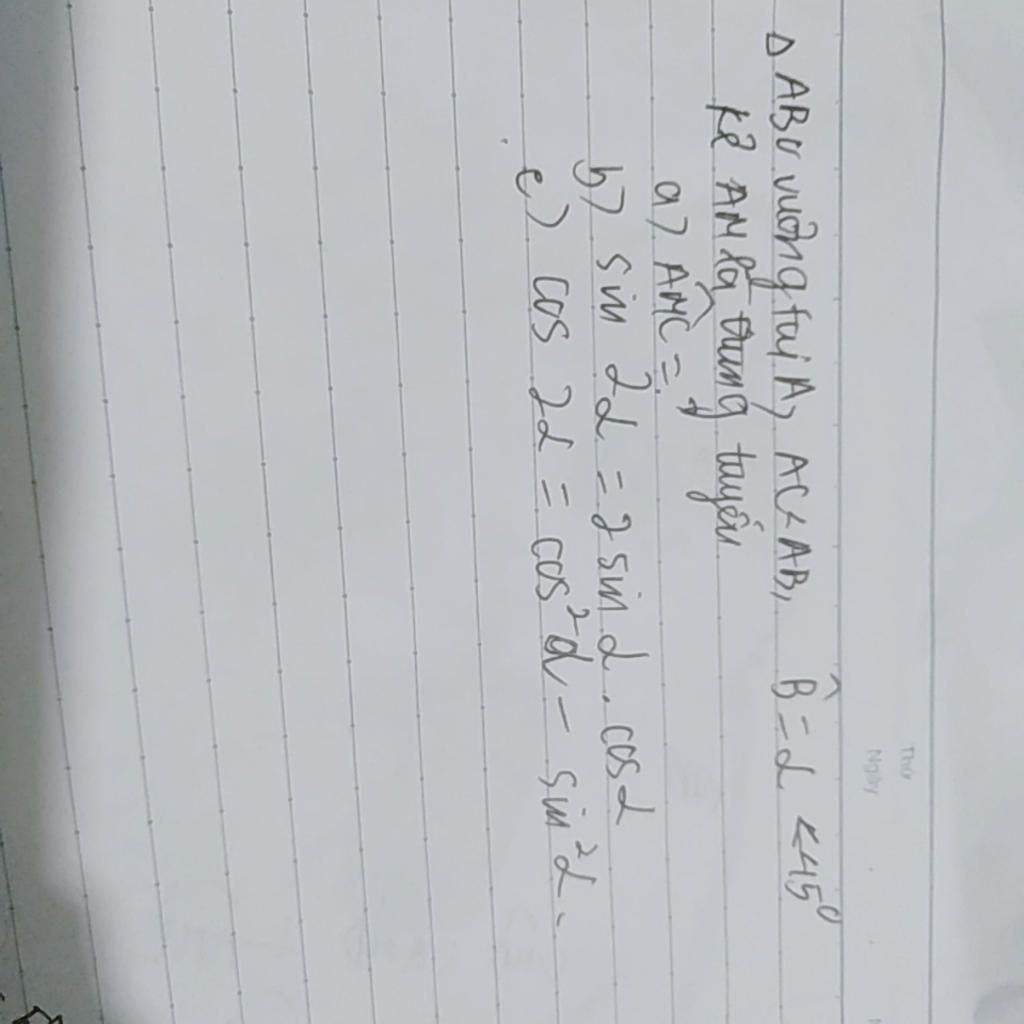 Thứ
Ngày
Δ ABC vuông tại A, AC < AB, B̂ = α < 45⁰
Kẻ AM là trung tuyến
a) AM̂C = ?
b) sin 2α = 2 sin α . cos α
c) cos 2α = cos²α - sin²α.